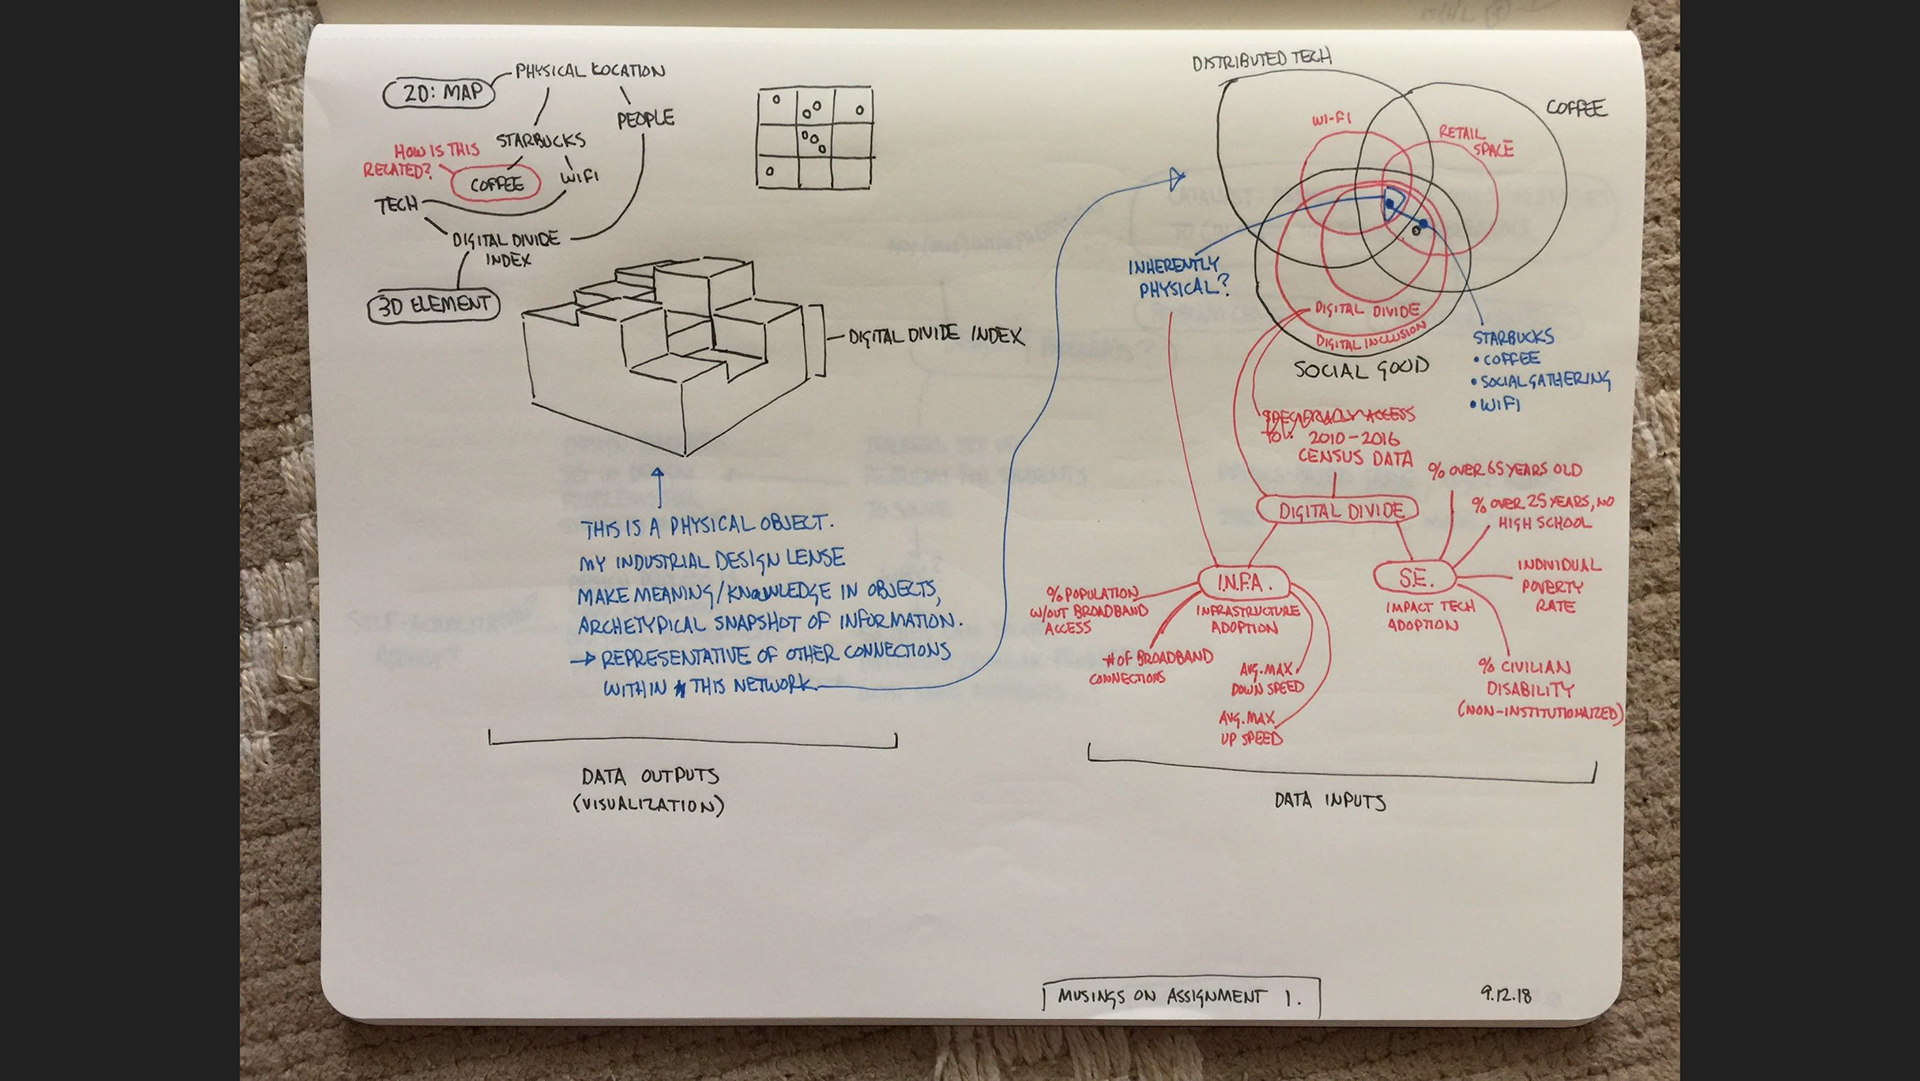 2D: MAP
PHYSICAL LOCATION
PEOPLE
STARBUCKS
HOW IS THIS
RELATED?
COFFEE
WIFI
TECH
DIGITAL DIVIDE
INDEX
3D ELEMENT
DIGITAL DIVIDE INDEX
THIS IS A PHYSICAL OBJECT.
MY INDUSTRIAL DESIGN LENSE
MAKE MEANING/KNOWLEDGE IN OBJECTS,
ARCHETYPICAL SNAPSHOT OF INFORMATION.
→ REPRESENTATIVE OF OTHER CONNECTIONS
WITHIN THIS NETWORK
DATA OUTPUTS
(VISUALIZATION)
DISTRIBUTED TECH
COFFEE
WI-FI
RETAIL
SPACE
INHERENTLY
PHYSICAL?
DIGITAL DIVIDE
DIGITAL INCLUSION
SOCIAL GOOD
STARBUCKS
• COFFEE
• SOCIAL GATHERING
• WIFI
ACCESS
2010-2016
CENSUS DATA
DIGITAL DIVIDE
% OVER 65 YEARS OLD
% OVER 25 YEARS, NO
HIGH SCHOOL
I.N.F.A.
INFRASTRUCTURE
ADOPTION
S.E.
IMPACT TECH
ADOPTION
INDIVIDUAL
POVERTY
RATE
% POPULATION
W/OUT BROADBAND
ACCESS
# OF BROADBAND
CONNECTIONS
AVG. MAX
DOWN SPEED
AVG. MAX
UP SPEED
% CIVILIAN
DISABILITY
(NON-INSTITUTIONAIZED)
DATA INPUTS
MUSINGS ON ASSIGNMENT 1.
9.12.18